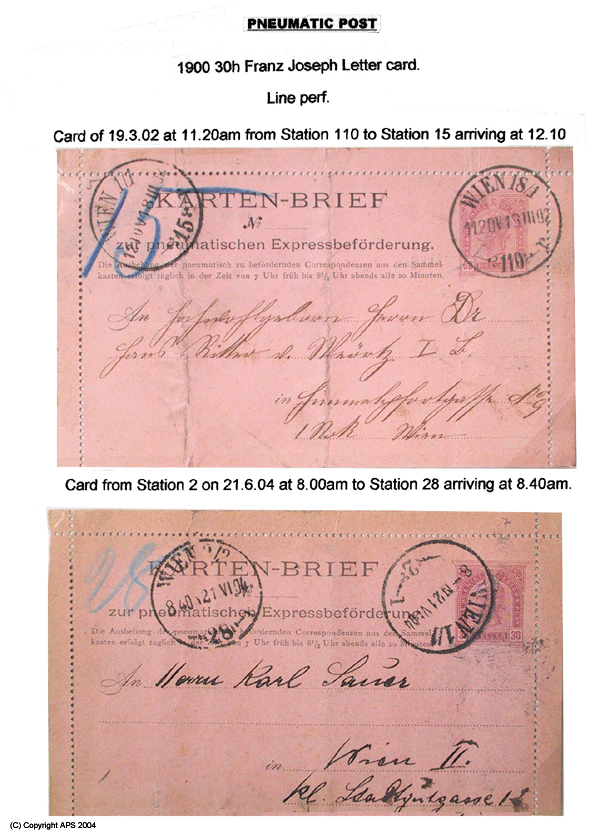 PNEUMATIC POST
1900 30h Franz Joseph Letter card.
Line perf.
Card of 19.3.02 at 11.20am from Station 110 to Station 15 arriving at 12.10
15
WIEN 1/1
12.10V 18 III
*15*
WIEN 18/1
11.20V 18 III 02
110
KARTEN-BRIEF
№
zur pneumatischen Expressbeförderung.
Die Aushebung der pneumatisch zu befördernden Correspondenzen aus den Sammel-
kasten erfolgt täglich in der Zeit von 7 Uhr früh bis 8½ Uhr abends alle 20 Minuten.
An Hochwohlgeboren Herrn Dr
Hans Ritter v.
in Himmelpfortgasse No 9
Wien
Card from Station 2 on 21.6.04 at 8.00am to Station 28 arriving at 8.40am.
28
WIEN 2/2
8.40 21 VI 04
28
WIEN 1/1
8 21 VI 04
2
30
KARTEN-BRIEF
zur pneumatischen Expressbeförderung
Die Aushebung der pneumatisch zu befördernden Correspondenzen aus den Sammel-
kasten erfolgt täglich in der Zeit von 7 Uhr früh bis 8½ Uhr abends alle 20 Minuten.
An Herrn Karl Sauer
in Wien II.
kl. Stadtgutgasse
(C) Copyright APS 2004